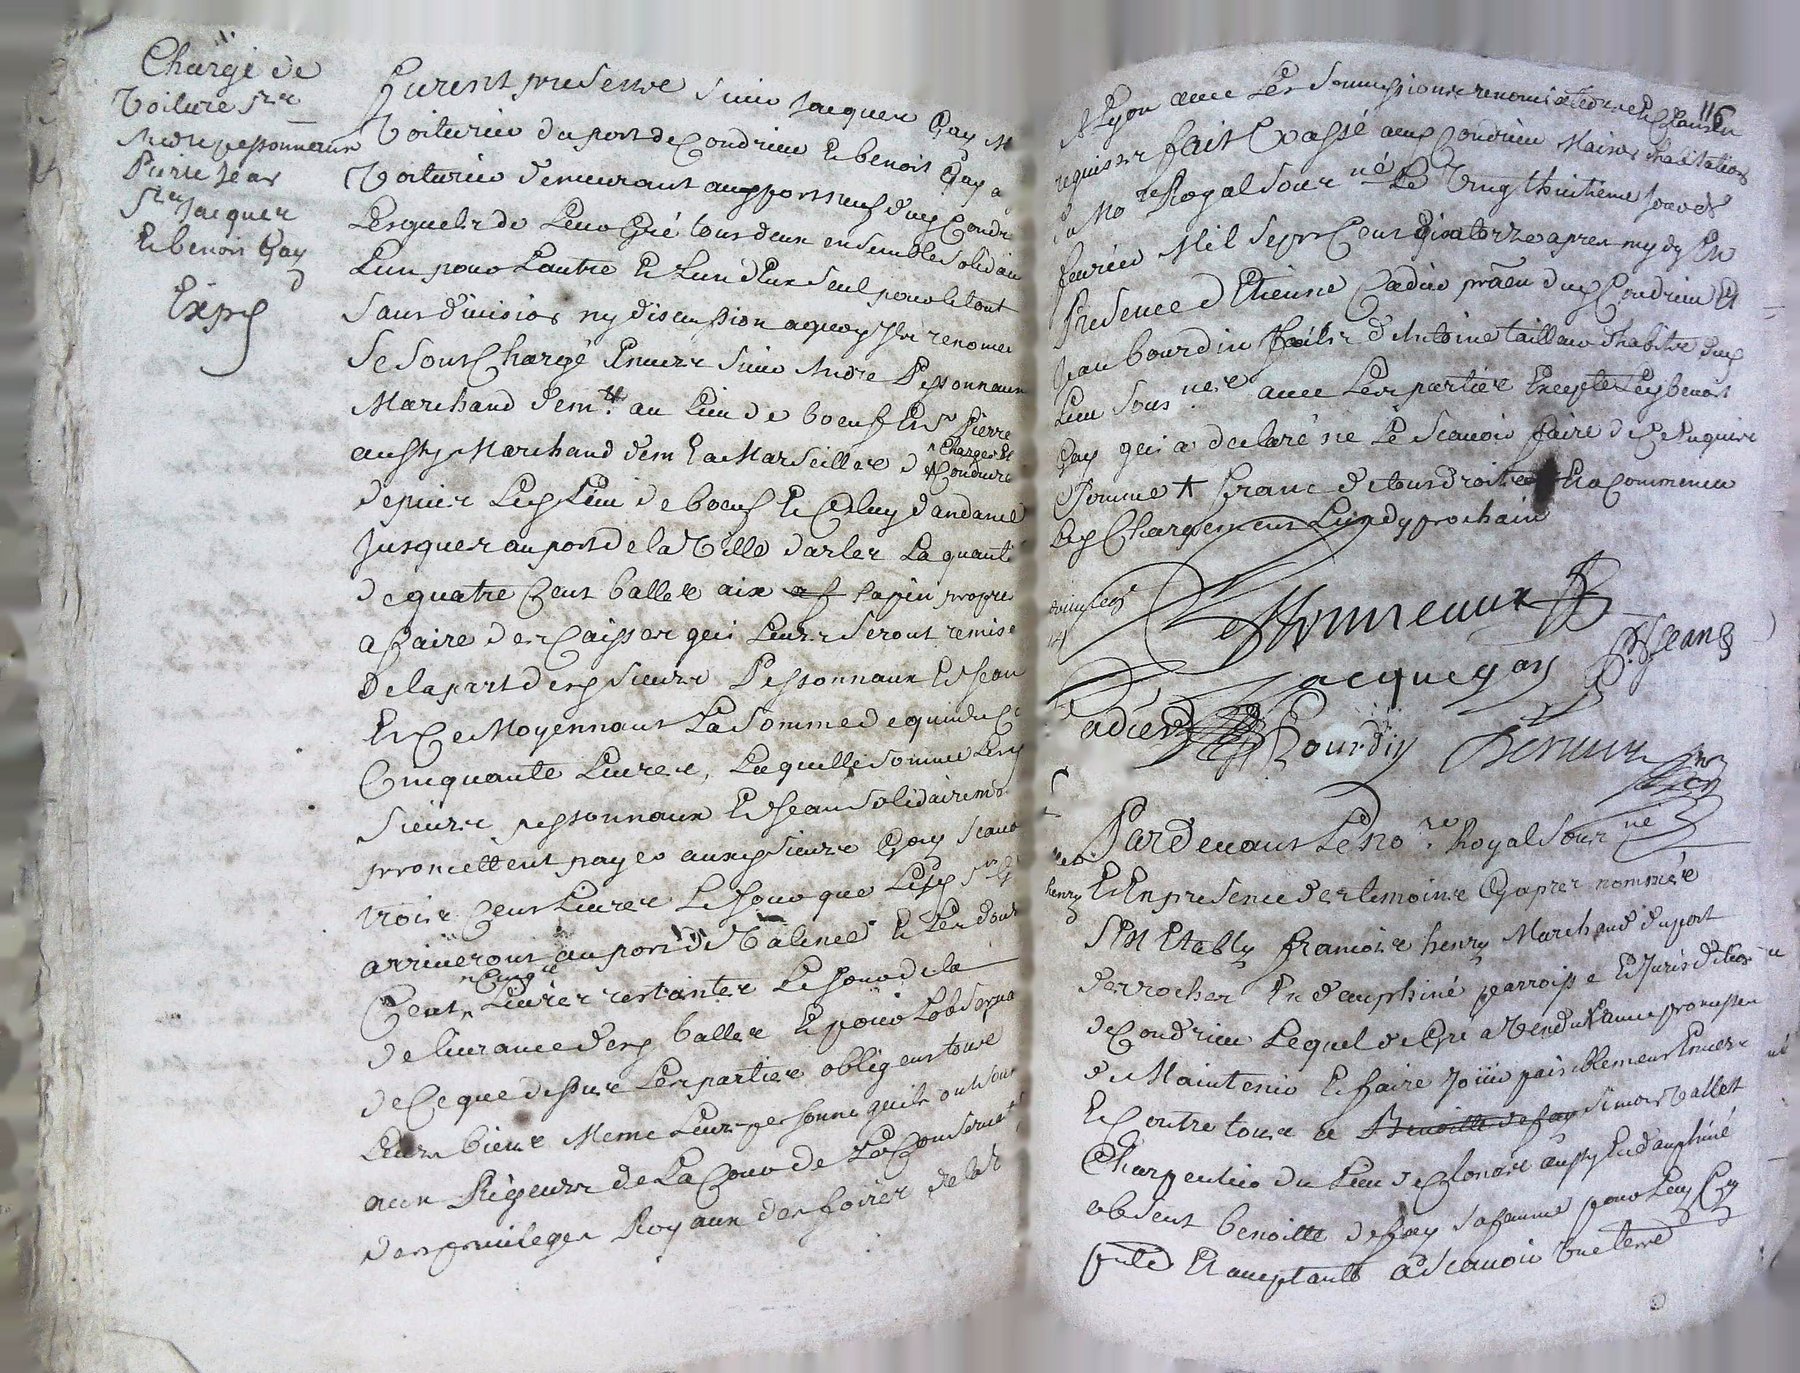 Chargé de
Voiture srs
André pessonneaux
Pierre Jean
srs Jacques
Et benoit Gay
Exp
Furent presents sieurs Jacques Gay M
Voiturier du port de Condrieu Et benoit Gay a
Voiturier demeurant aud port neuf dud Condr
Lesquels de Leur Gré tous deux ensemble solidai
Lun pour Lautre Et Lun deux seul pour le tout
Sans division ny discussion a quoy Ils renoncen
Se sont Chargé Envers sieurs André Pessonnaux
Marchand demt au Lieu de boeuf Et sr Pierre
aussy Marchand dem a Marseille de Charger Et
Conduire
depuis Led Lieu de boeuf Et Celuy dandance
Jusques au port de la Ville darles La quanti
de quatre Cent balles aix sapin propre
a faire des Caisses qui Leurs seront remise
De la part desd sieurs Pessonnaux Et Jean
Et Ce Moyennant La somme de quinze C
Cinquante Livres, Laquelle somme Lesd
Sieurs pessonnaux Et Jean solidairemt
promettent payer auxd sieurs Gay scavo
trois Cent Livres Le Jour que Lesd srs G
arriveront au port de Valence Et Les douz
Cent Cinqte Livres restantes Le Jour de la
delivrance desd balles Et pour Lobserva
de Ce que dessus Les parties obligent tous
Leurs biens Meme Leurs personne quils ont soum
aux Rigeurs de La Cour de La Conservat
des privileges Royaux des foires de la V
116
de Lyon avec Les soumissions renonciations Et Clauses
requises fait Et passé aud Condrieu Maison dhabitation
du Nore Royal sousné Le Vingthuitieme Jour de
fevrier Mil sept Cent quatorze apres mydy En
Presence d Etienne Cadier dud Condrieu Et
Jean bourdin fils d Antoine tailleur dhabits dud
Lieu sousnes avec Les parties Excepte Led benoit
Gay qui a declaré ne Le scavoir faire de Ce Enquis
Somme + franc de tous droits Et a Commencer
Led Chargement Lundy prochain
Pessonneaux
P. Jean
Jacque gay
Cadier
Bourdin
Pardevant Le Nore Royal sousné
Et En presence des temoins Cy apres nommés
henry
S Est Etably francois henry Marchand du port
des rocher En dauphiné parroisse Et Jurisdiction
de Condrieu Lequel de Gre a Vendu avec promesse
de Maintenir Et faire Jouir paisiblement Envers
Et Contre tous a Benoitte defay simon Vallet
Charpentier du Lieu de Clonas aussy En dauphiné
absent benoitte defay sa femme pour Luy Cy
Et acceptante a scavoir Une terre